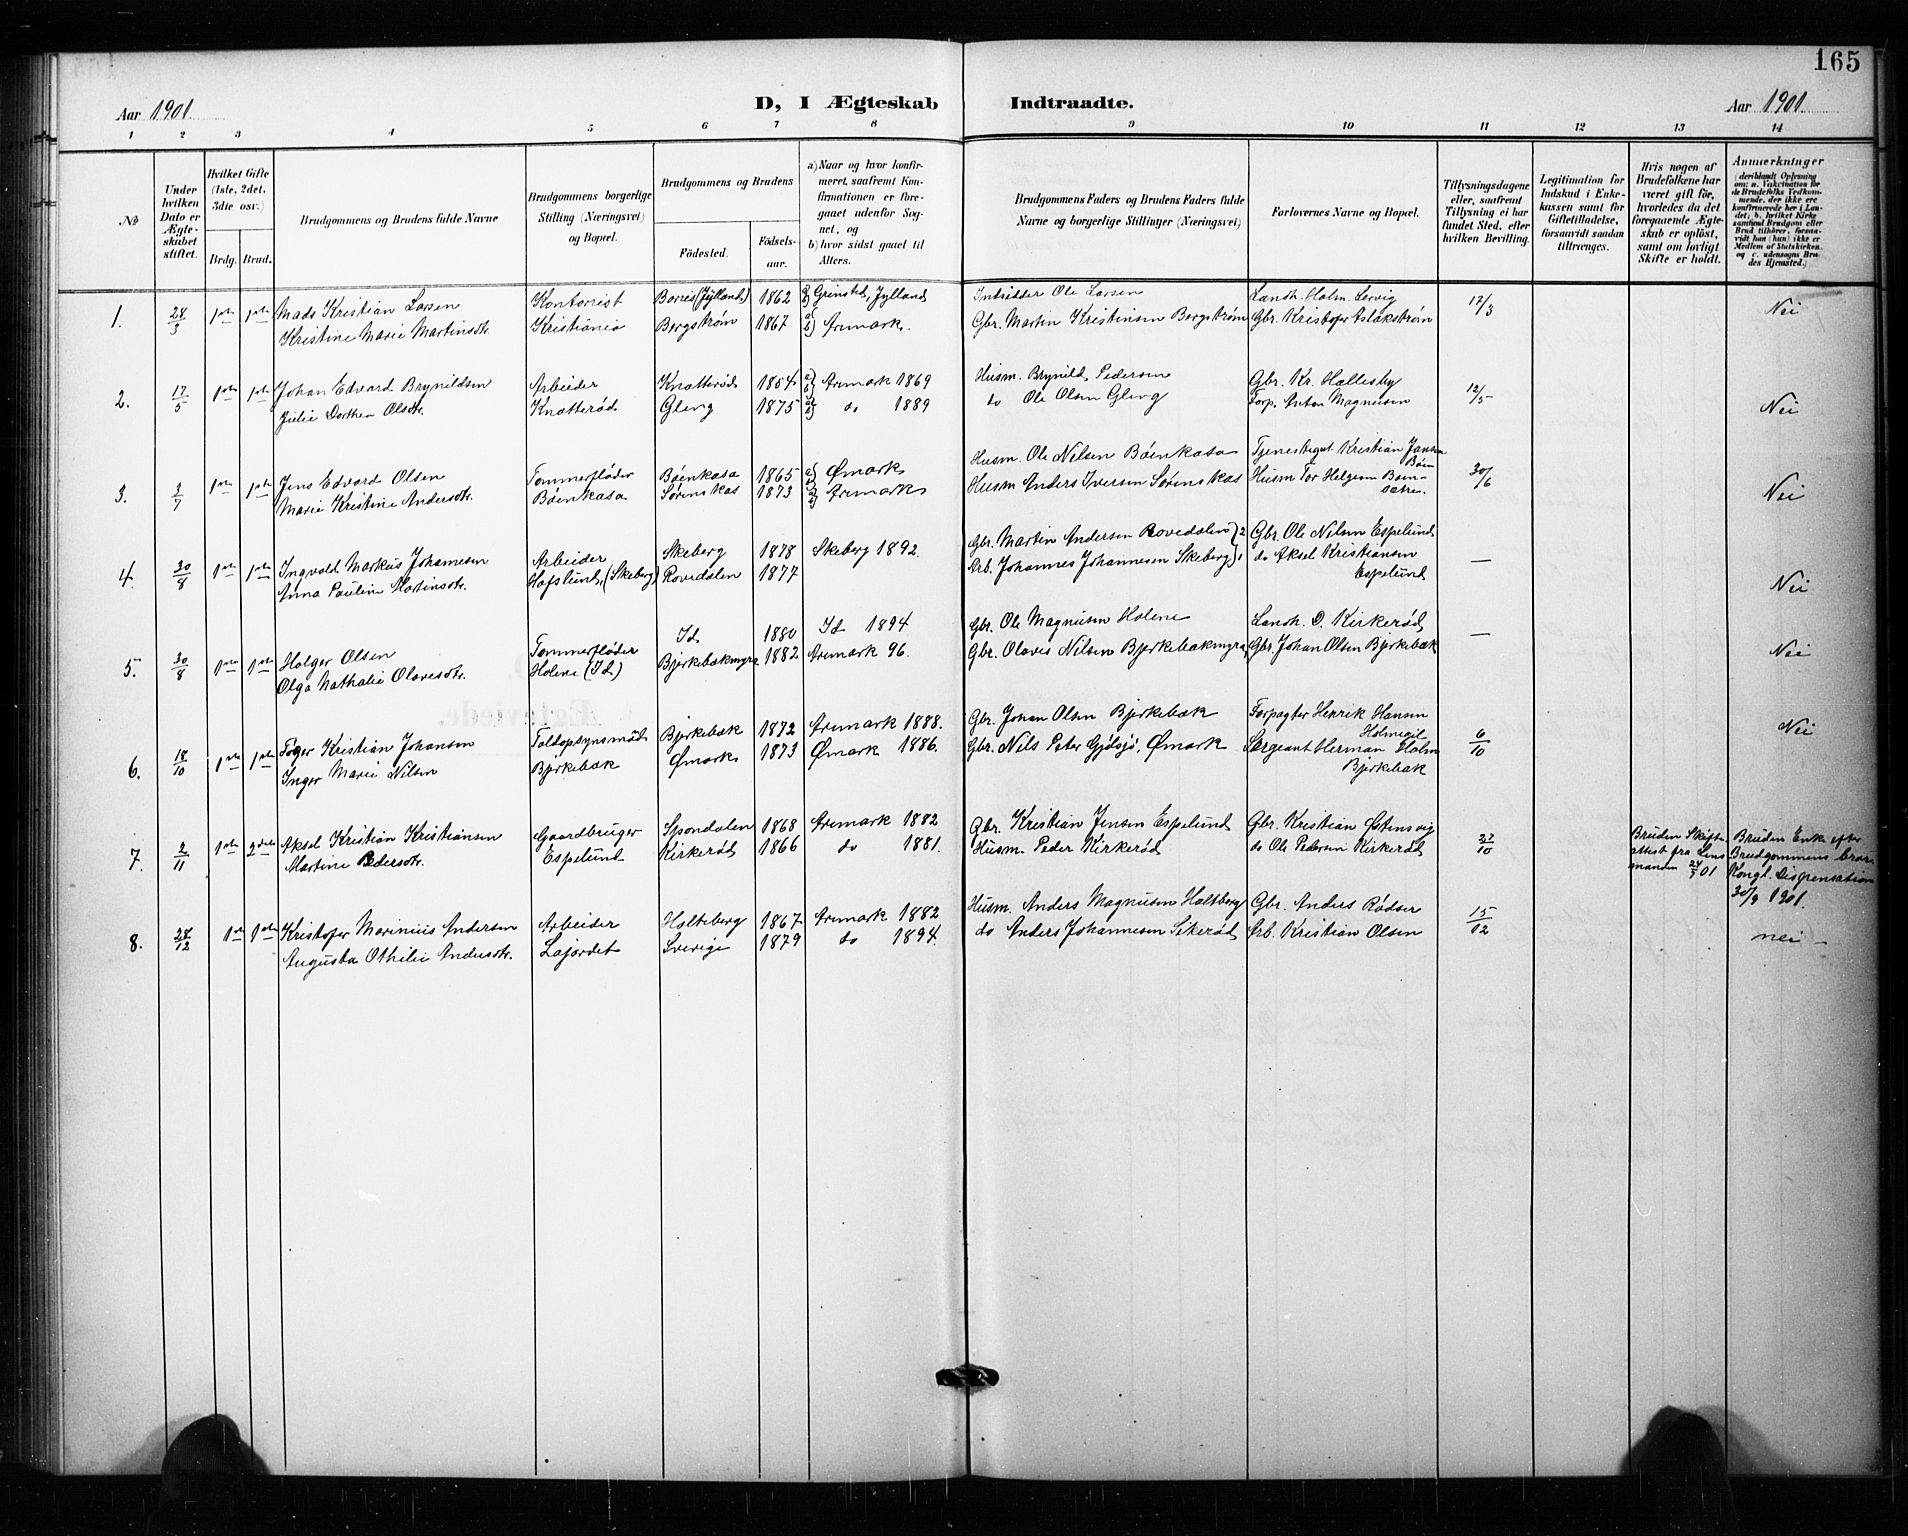 165
Aar 1901.
D, I Ægteskab Indtraadte.
Aar 1901.
1 2 3 4 5 6 7 8 9 10 11 12 13 14
No
Under hvilken Dato er Ægteskabet stiftet.
Hvilket Gifte (1ste, 2det, 3die osv.)
Brdg. Brud.
Brudgommens og Brudens fulde Navne
Brudgommens borgerlige Stilling (Næringsvei) og Bopæl.
Brudgommens og Brudens
Fødested.
Fødselsaar.
a) Naar og hvor konfirmeret, saafremt Konfirmationen er foregaaet udenfor Sognet, og
b) hvor sidst gaaet til Alters.
Brudgommens Faders og Brudens Faders fulde Navne og borgerlige Stillinger (Næringsvei)
Forlovernes Navne og Bopæl.
Tillysningsdagene eller, saafremt Tillysning ei har fundet Sted, efter hvilken Bevilling.
Legitimation for Indskud i Enkekassen samt for Giftetilladelse, forsaavidt saadan tiltrænges.
Hvis nogen af Brudefolkene har været gift før, hvorledes da det foregaaende Ægteskab er opløst, samt om lovligt Skifte er holdt.
Anmerkninger
(deriblandt Oplysning om: a. Vakcination for de Brudefolks Vedkommende, der ikke ere konfirmerede her i Landet; b. hvilket Kirkesamfund Brudgom eller Brud tilhører, forsaavidt han (hun) ikke er Medlem af Statskirken og c. udensogns Brudes Hjemsted.)
1. 28/3 1ste 1ste Mads Kristian Larsen Kontorist Borris (Jylland) 1862 a) b) Grinsted, Jylland Indsidder Ole Larsen Landh. Holm. Lervig 17/3 Nei
Kristine Marie Martinsdtr. Kristiania Bergstrøm 1867 a) b) Aremark. Gbr. Martin Kristinsen Bergstrøm Gbr. Kristofer Aslakstrøm
2. 17/5 1ste 1ste Johan Edvard Brynildsen Arbeider Knatterød 1854 a) b) Aremark 1869 Husm. Brynild Pedersen Gbr. Kr. Hallesby 12/5 Nei
Julie Dorthea Olsdtr. Knatterød Gleng 1875 a) b) do 1889 do Ole Olsen Gleng Forp. Anton Magnusen
3. 3/7 1ste 1ste Jens Edvard Olsen Tømmerfløder Bøenkasa 1865 a) b) Ømark Husm. Ole Nilsen Bøenkasa Tjenestegut Kristian Jansen Bøen 30/6 Nei
Marie Kristine Andersdtr. Bøenkasa Sørenskas 1873 a) b) Aremark Husm Anders Iversen Sørenskas Husm Tor Helgesen Bøensætre.
4. 30/8 1ste 1ste Ingvald Markus Johannesen Arbeider Skeberg 1878 Skeberg 1892. Gbr. Martin Andersen Rovedalen } 2 Gbr. Ole Nilsen Espelund — Nei
Anna Pauline Martinsdtr. Hafslund, (Skeberg) Rovedalen 1877 Arb. Johannes Johannesen Skeberg } 1 do Aksel Kristiansen Espelund
5. 30/8 1ste 1ste Holger Olsen Tømmerfløder Id 1880 Id 1894 Gbr. Ole Magnusen Holene Landh. D. Kirkerød — Nei
Olga Nathalie Olavesdtr. Holene (Id) Bjerkebækmyra 1882 Aremark 96. Gbr. Olaves Nilsen Bjerkebækmyra Gbr. Johan Olsen Bjerkebæk
6. 18/10 1ste 1ste Tøger Kristian Johansen Toldopsynsmand Bjerkebæk 1872 Aremark 1888. Gbr. Johan Olsen Bjerkebæk Forpagter Henrik Hansen Holmegil 6/10 Nei
Inger Marie Nilsen Bjerkebæk Ømark 1873 Ømark 1886. Gbr. Nils Peter Gjølsjø, Ømark Sergeant Herman Holm Bjerkebæk
7. 2/11 1ste 2det Aksel Kristian Kristiansen Gaardbruger Spondalen 1868 Aremark 1882 Gbr. Kristian Jensen Espelund Gbr. Kristian Østensvig 27/10 Bruden Skifteattest fra Lensmanden 24/7 01 Bruden Enke efter Brudgommens bror. Kongl. Dispensation 30/9 1901.
Martine Pedersdtr. Espelund Kirkerød 1866 do 1881. Husm. Peder Kirkerød do Ole Pedersen Kirkerød
8. 28/12 1ste 1ste Kristofer Marinius Andersen Arbeider Holteberg 1867 Aremark 1882 Husm. Anders Magnusen Holtberg Gbr. Anders Rødser 15/12 nei –
Augusta Othilie Andersdtr. Løjordet Sverige 1879 do 1894. do Anders Johannesen Sekerød Arb. Kristian Olsen